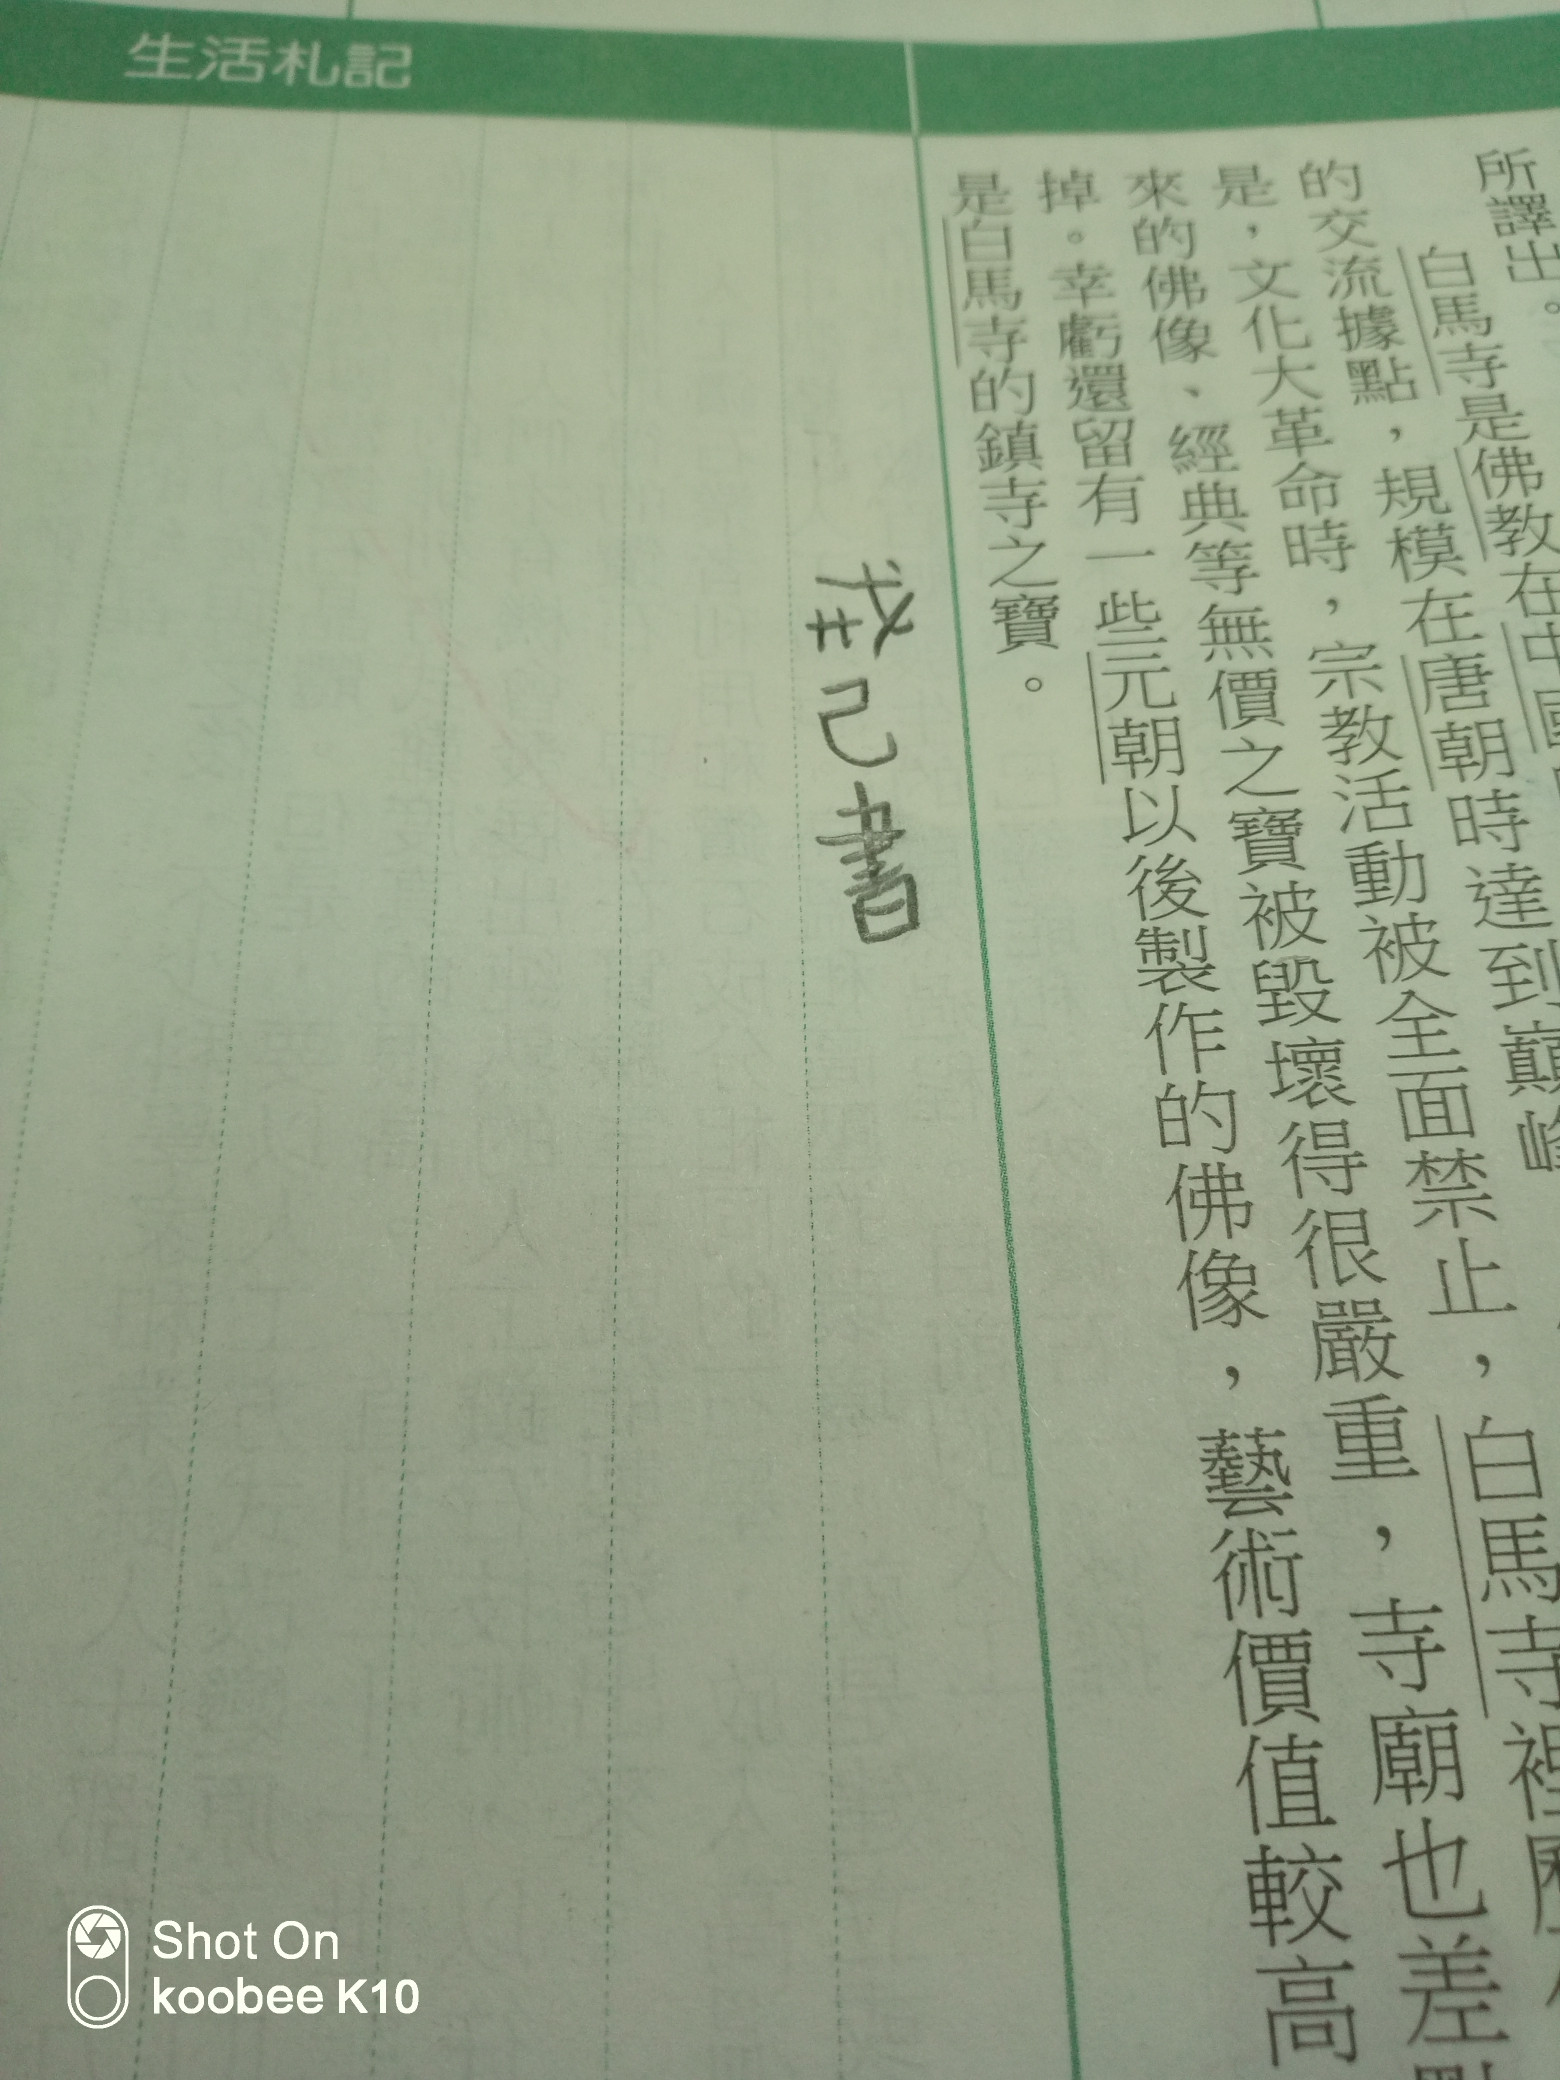 生活札記
所譯出。
白馬寺是佛教在中國
的交流據點，規模在唐朝時達到巔峰
是，文化大革命時，宗教活動被全面禁止，白馬寺裡歷
來的佛像、經典等無價之寶被毀壞得很嚴重，寺廟也差點
掉。幸虧還留有一些元朝以後製作的佛像，藝術價值較高
是白馬寺的鎮寺之寶。
己書
Shot On
koobee K10